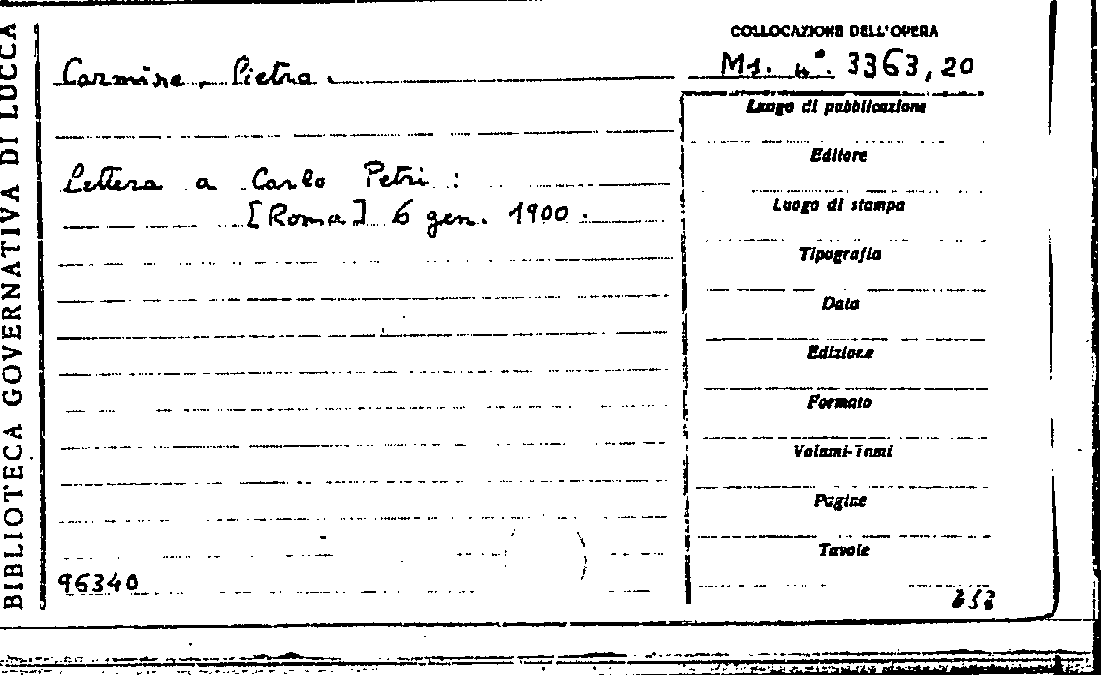 BIBLIOTECA GOVERNATIVA DI LUCCA
COLLOCAZIONE DELL'OPERA
Ms. n°. 3363,20
Carmine, Pietra.
Lettera a Carlo Petri :
[Roma] 6 gen. 1900.
96340
Luogo di pubblicazione
Editore
Luogo di stampa
Tipografia
Data
Edizione
Formato
Volumi-Tomi
Pagine
Tavole